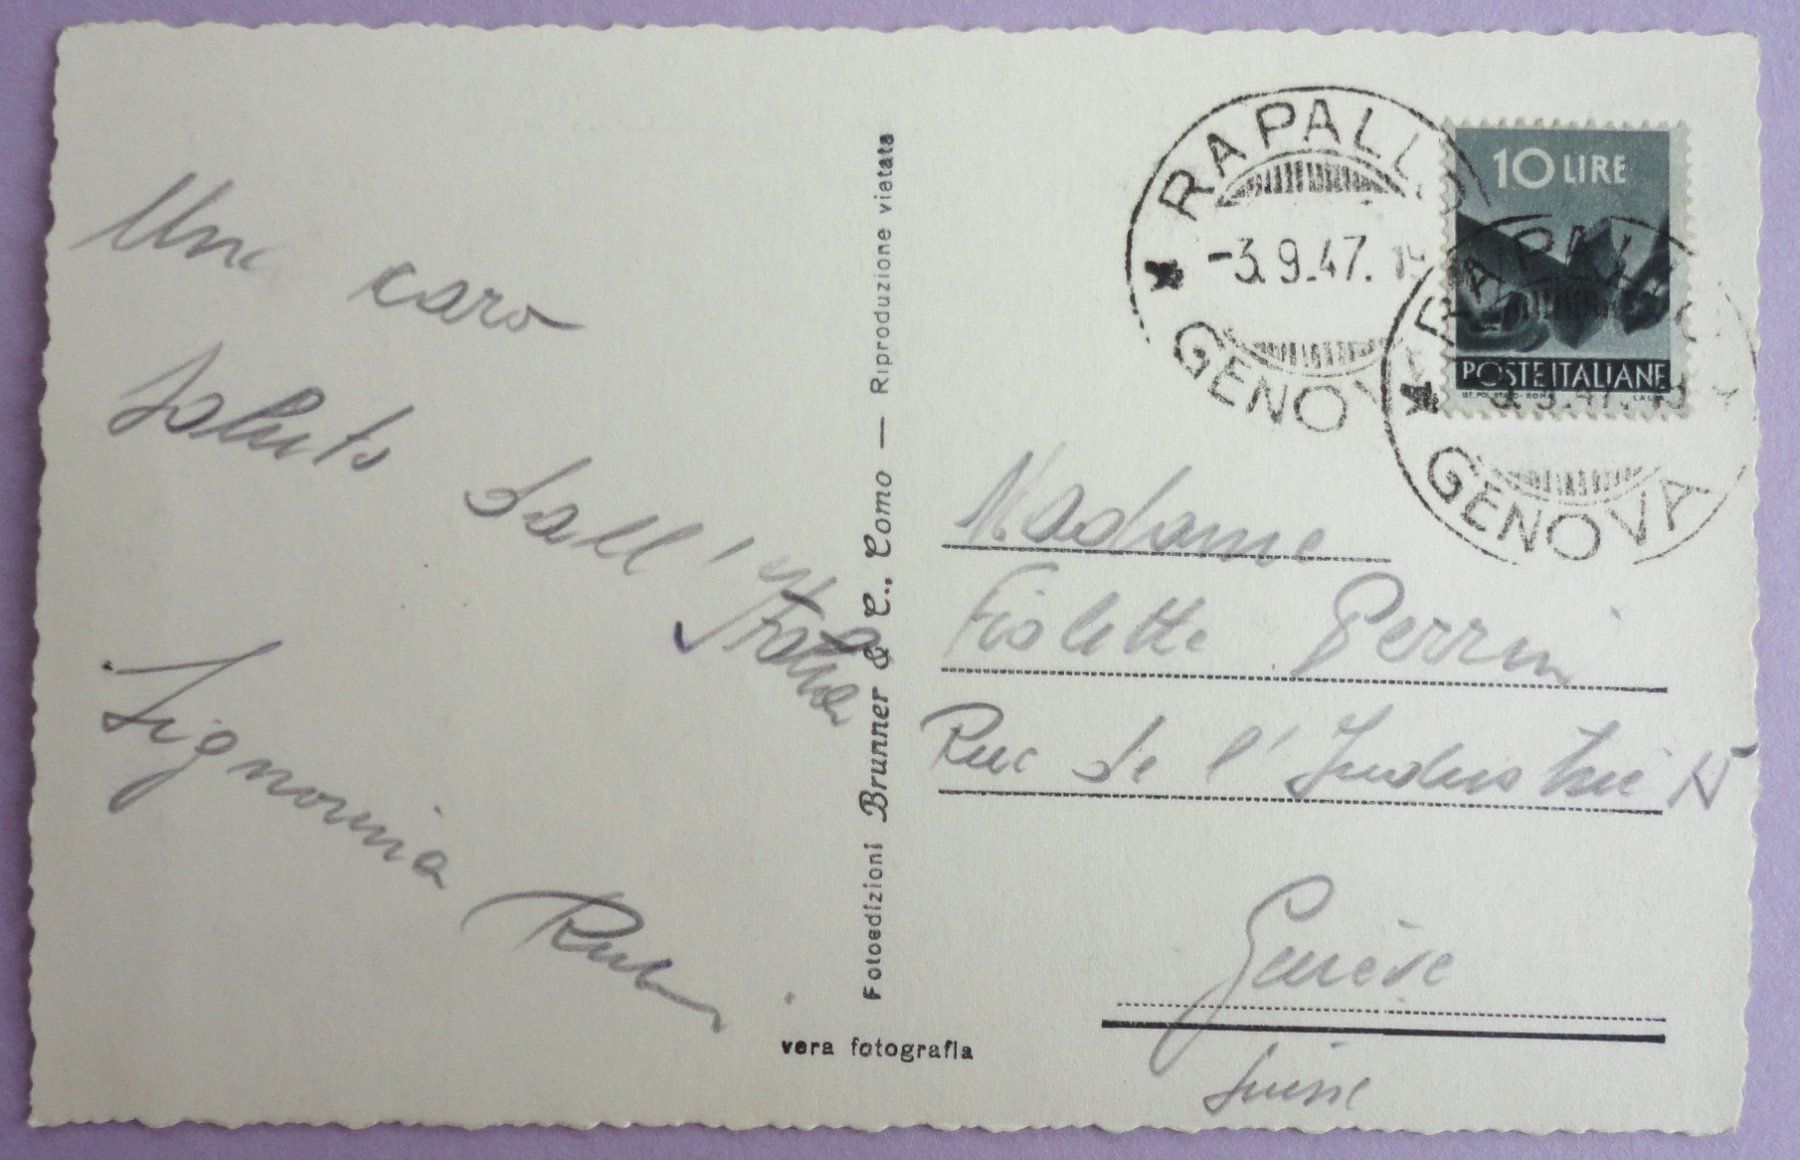 Una caro
saluto dall'
Italia
Signorina Rub
Fotoedizioni Brunner & C., Como — Riproduzione vietata
vera fotografia
RAPALLO
-3.9.47.
GENOVA
10 LIRE
POSTE ITALIANE
RAPALLO
GENOVA
Madame
Violette Perrin
Rue de l'Industrie 15
Genève
Suisse